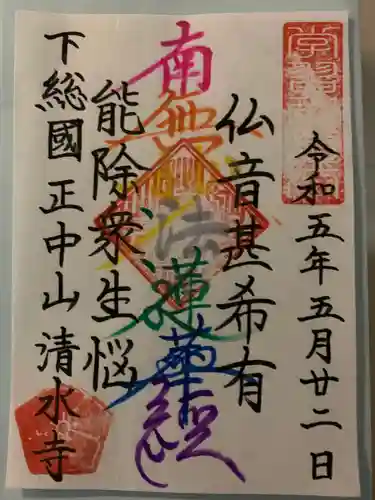 令和五年五月廿二日
仏音甚希有
南無妙法蓮華経
能除衆生悩
下総國正中山清水寺